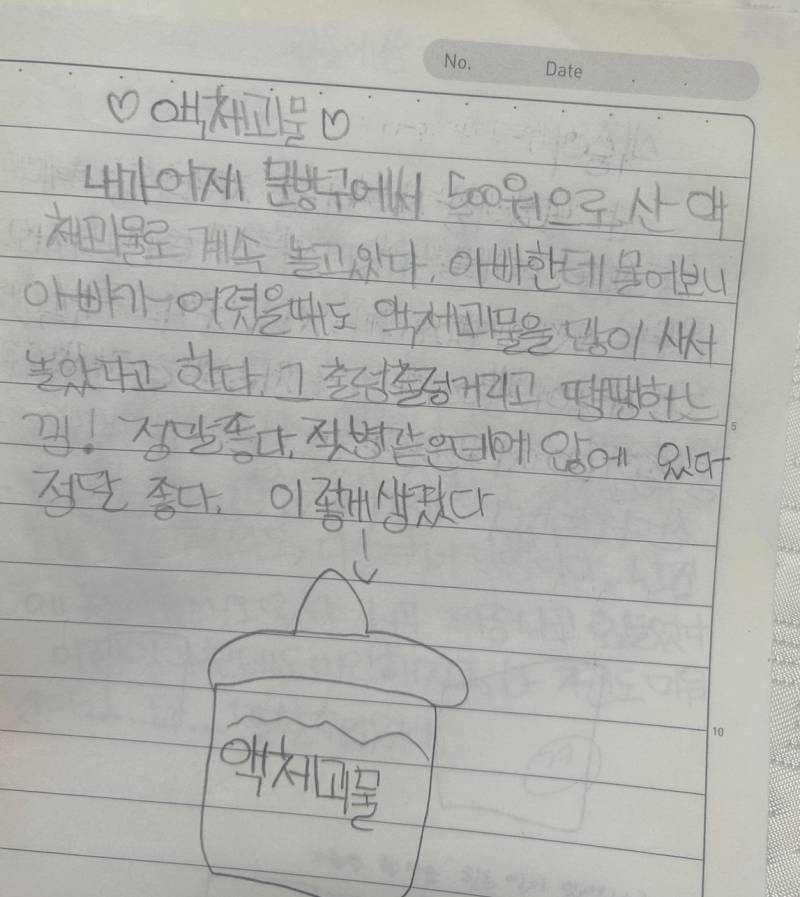 No. Date
♡액체괴물♡
내가어제 문방구에서 500원으로 산 액
체괴물로 계속 놀고있다. 아빠한테물어보니
아빠가 어렸을때도 액체괴물을 많이 사서
놀았다고 한다. 그 출렁출렁거리고 땡땡하는
낌! 정말좋다. 젖병같은데에 않에 있다
정말 좋다. 이렇게생겼다
↓
5
10
액체괴물